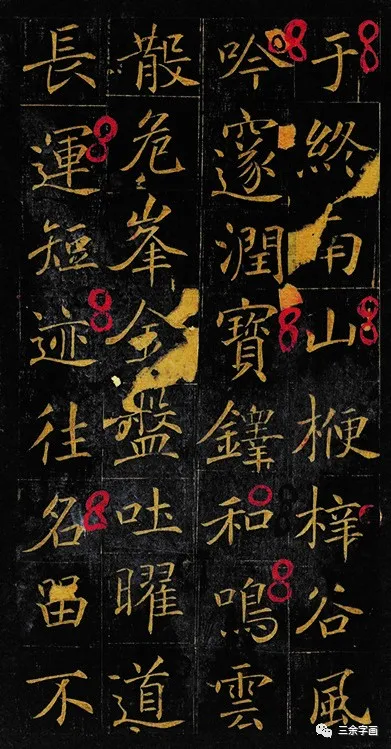 于終南山楩梓谷風
吟邃澗寶鐸和鳴雲
散危峯金盤吐曜道
長運短迹往名留不
三余字画